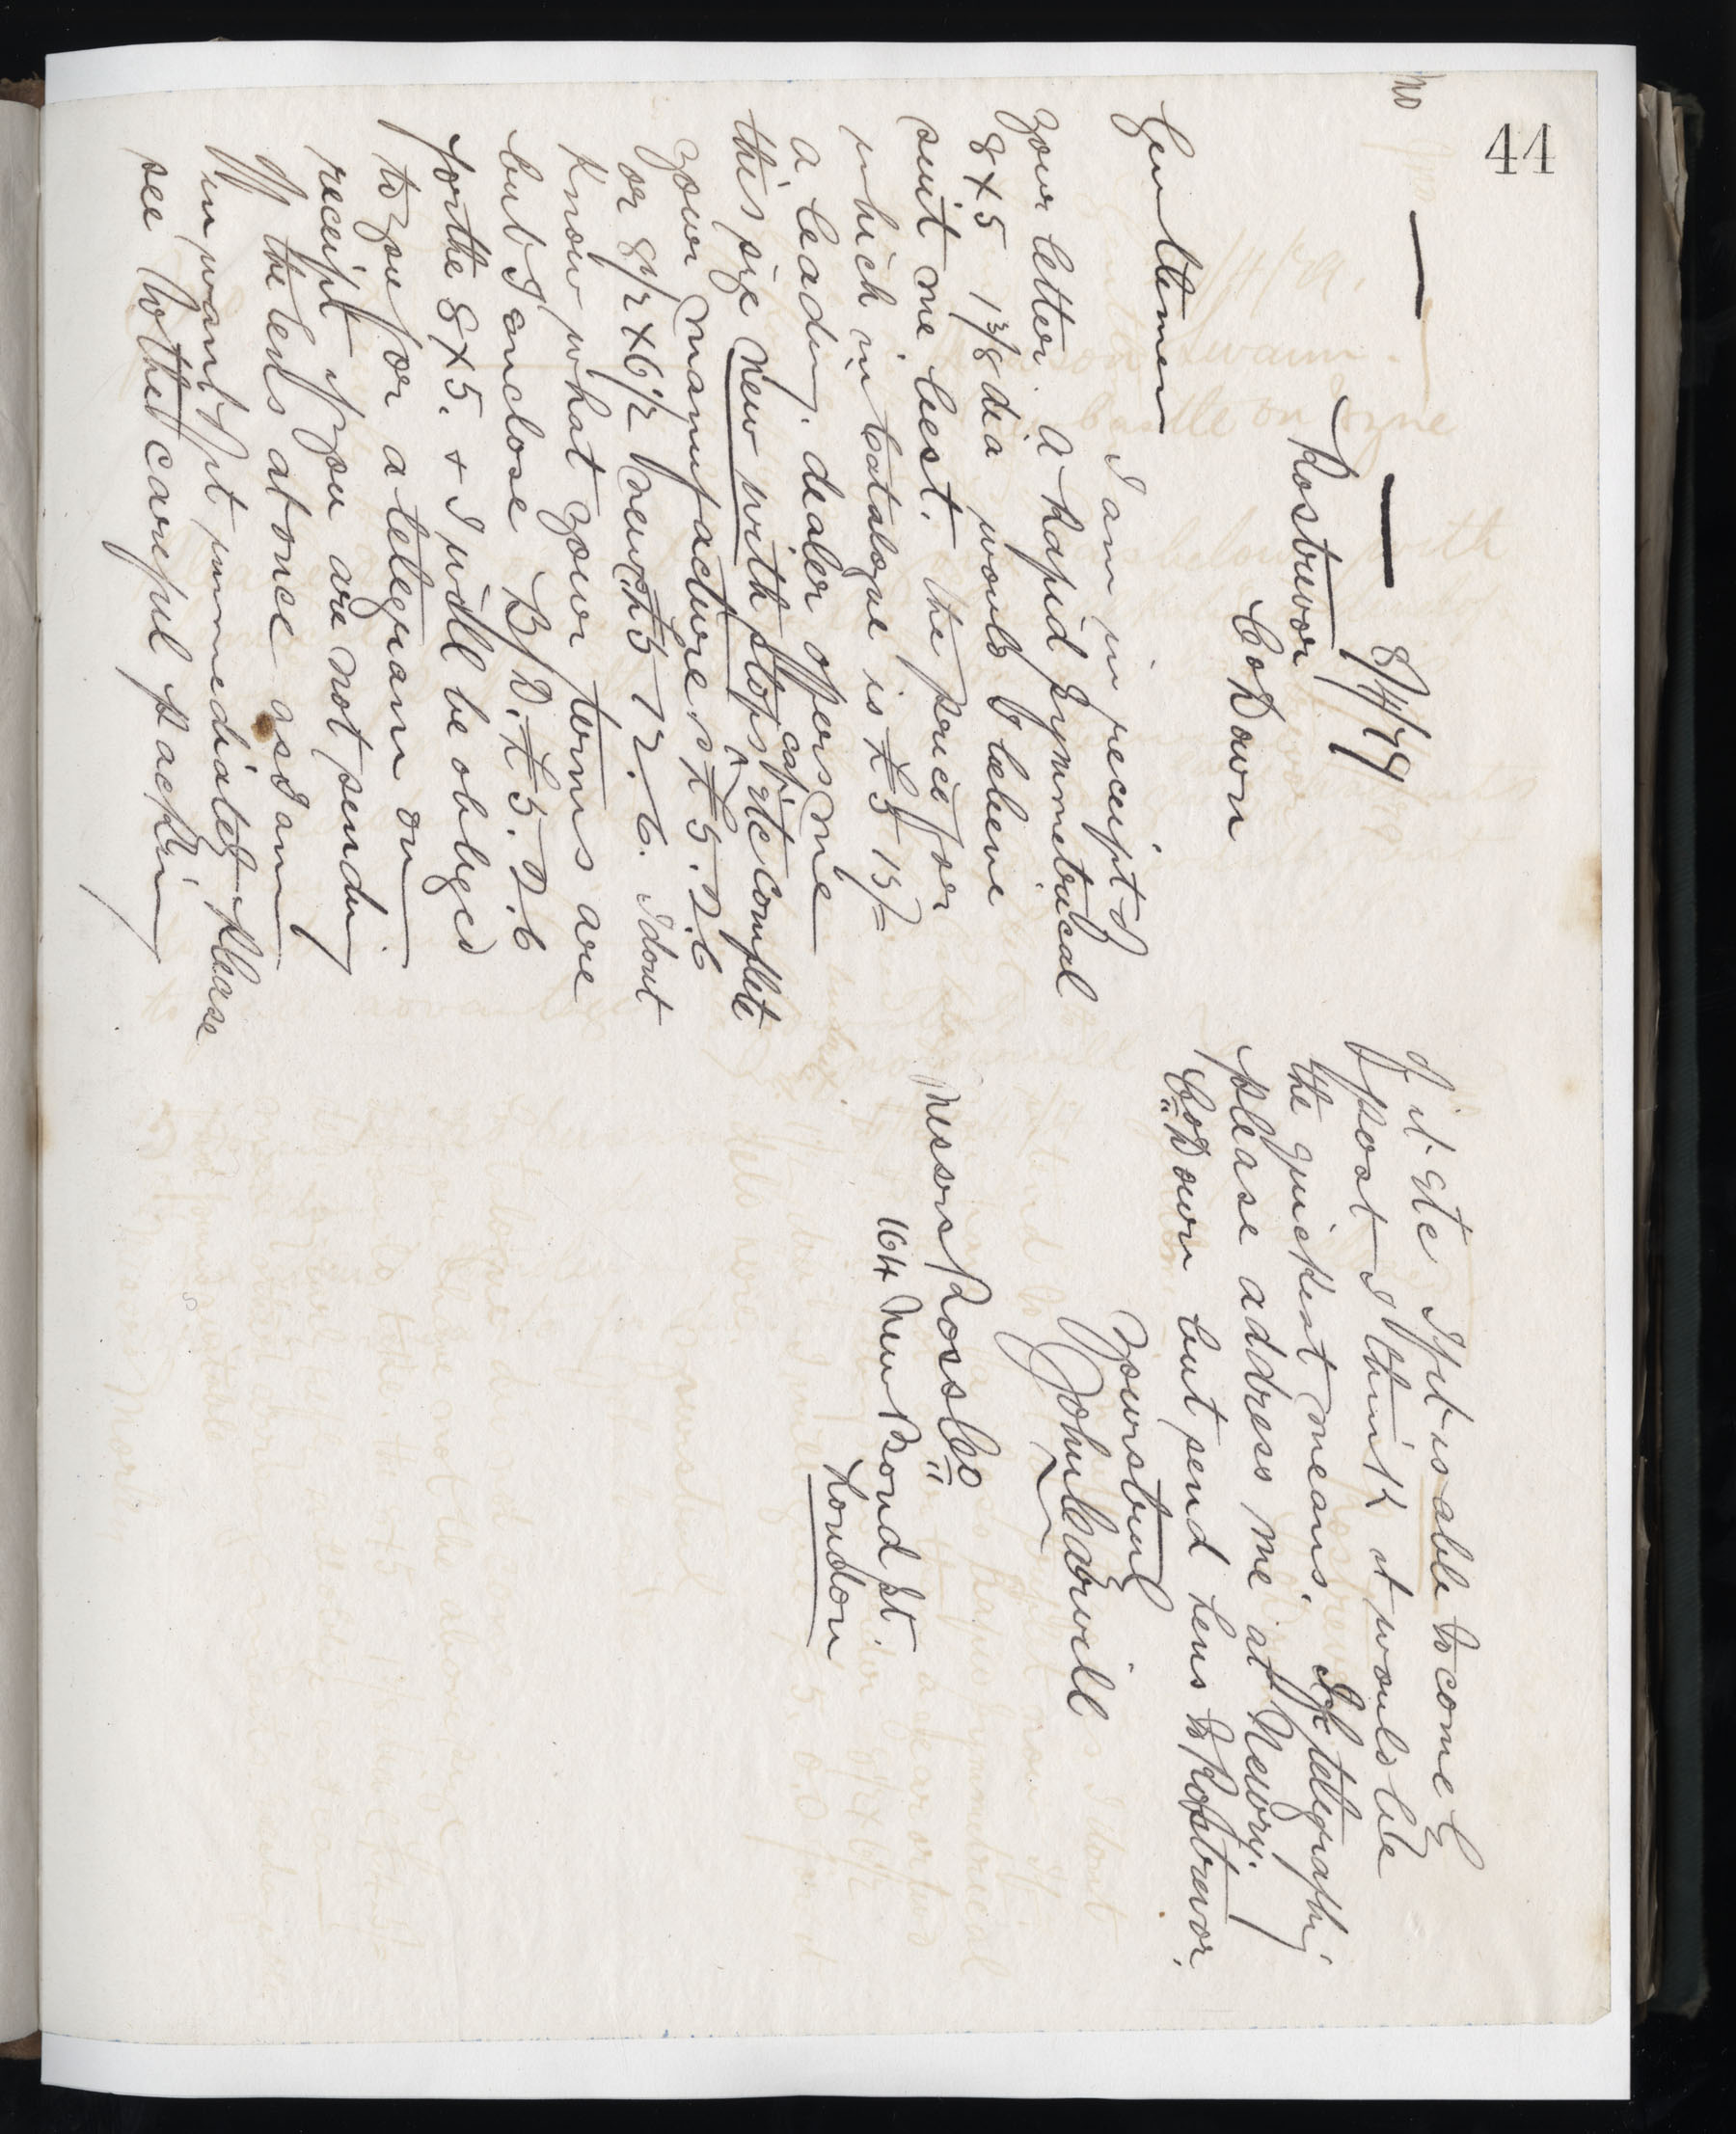 44
no
8/4/79
Rostrevor
Co Down
Gentlemen
I am in receipt of
your letter. A Rapid Symmetrical
8 x 5 1 3/8 dia would I believe
suit me best. The price for
which in Catalogue is £5 15/=
a leading dealer offers me
this size new with stops cap; etc complete
your manufacture £5.2.6
or 8 1/2 x 6 1/2 Sewd £5 12.6. I dont
know what your terms are
but I enclose B/D. £5.2.6
for the 8 x 5. & I will be obliged
to you for a telegram on
receipt if you are not sending
off the lens at once as I am
in want of it immediately Please
see to the careful packin
of it etc If it is able to come by
post I think it would be
the quickest means. If telegraphing
please address me at Newry
Co Down but send lens to Rostrevor.
Yours truly
John Cargill
Messrs Ross & Co
164 New Bond St.
London